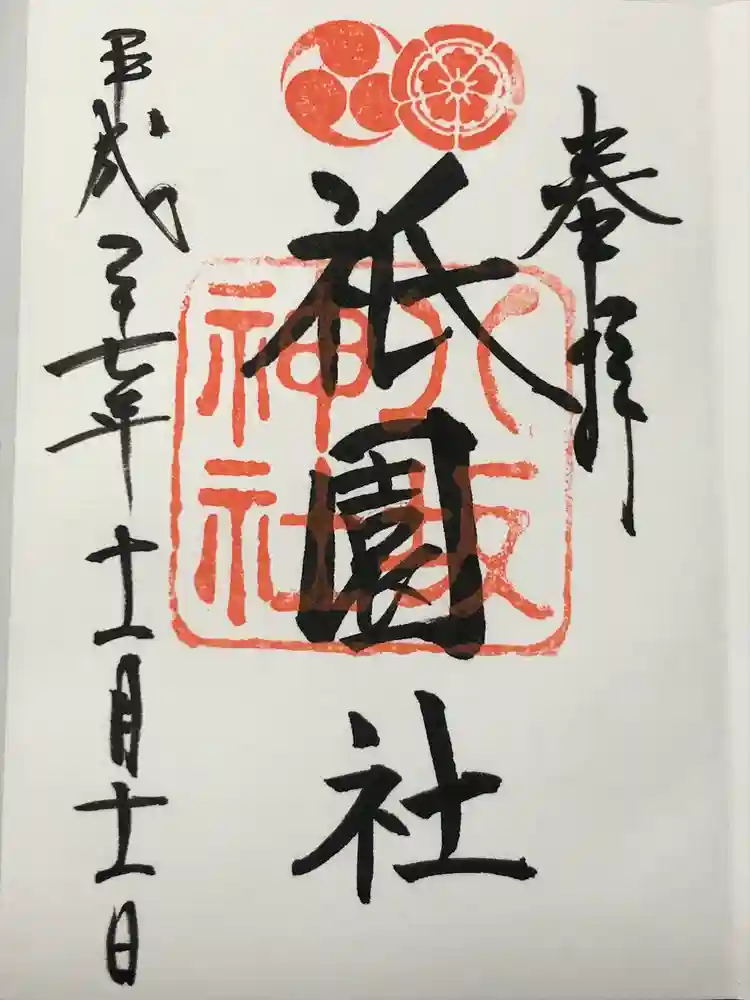 奉拝
祇園社
八坂
神社
平成二十七年十一月十一日